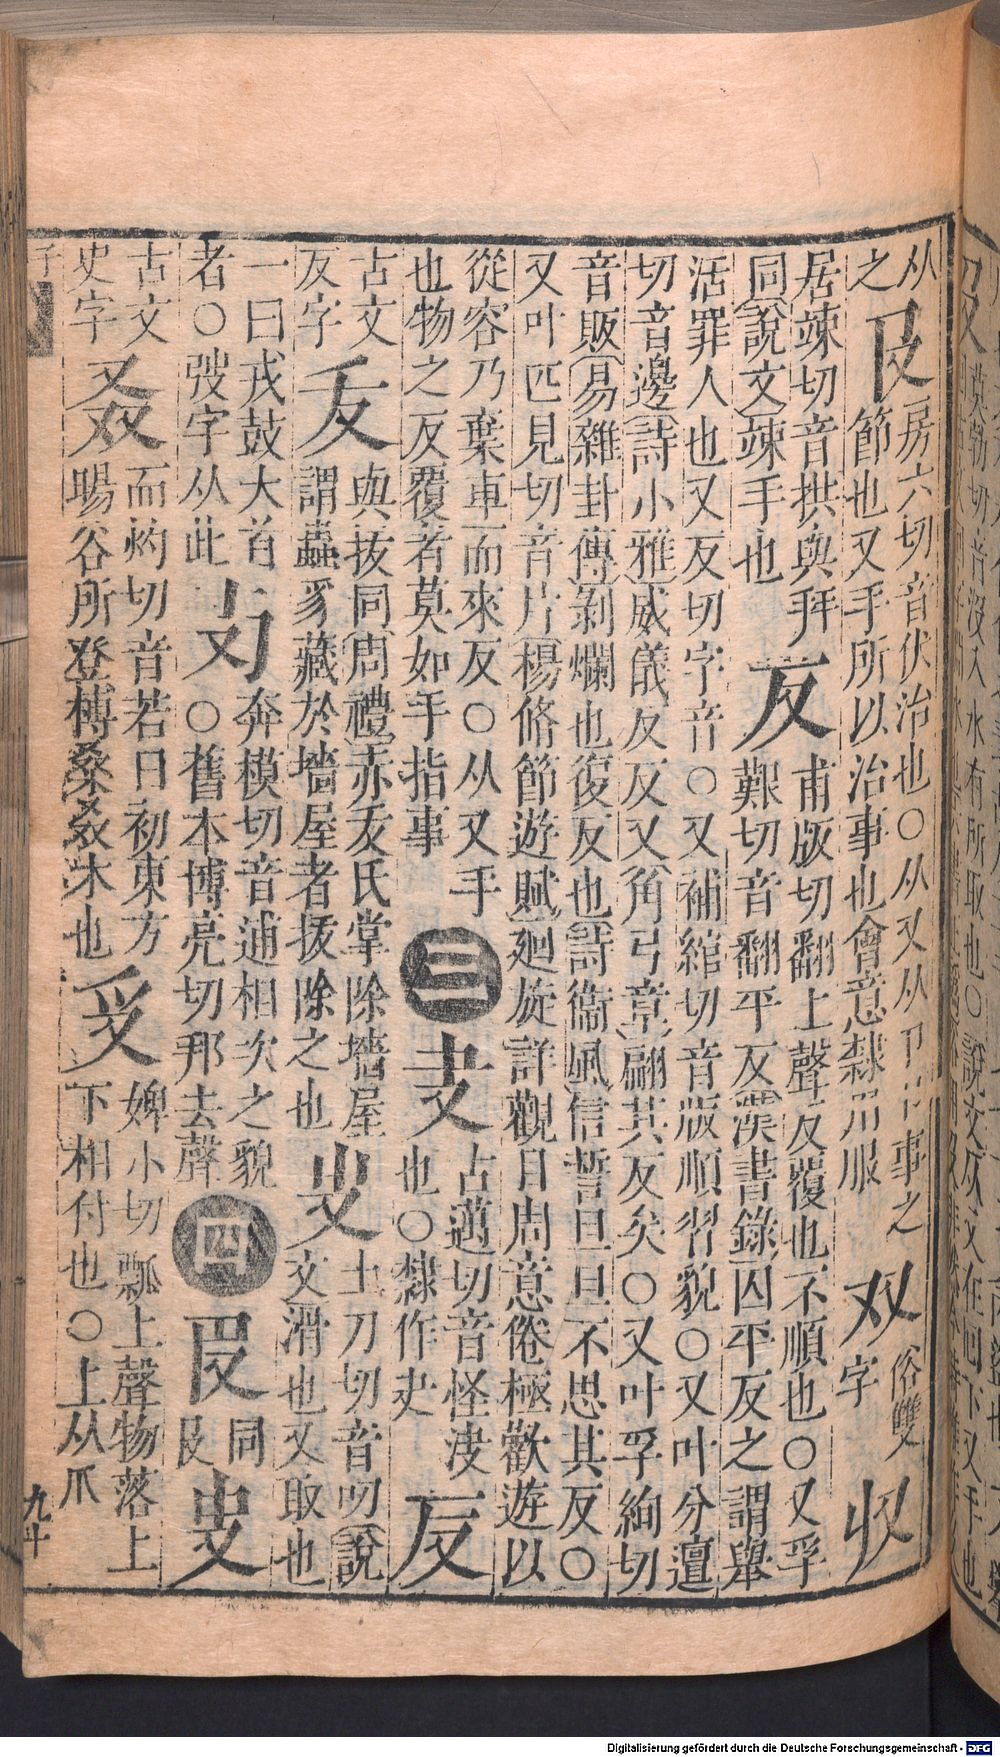 从
之
𠬝
房六切音伏治也○从又从卩卩事之
節也又手所以治事也會意隸用服
双
俗雙
字
収
居竦切音拱與拜
同(說文)竦手也
反
甫版切翻上聲反覆也不順也○又孚
艱切音翻平反(漢書錄)囚平反之謂舉
活罪人也又反切字音○又補綰切音版順習貌○又叶分邅
切音邊(詩小雅)威儀反反又(角弓章)翩其反矣○又叶孚絢切
音販(易雜卦傳)剝爛也復反也(詩衞風)信誓旦旦不思其反○
又叶匹見切音片(楊脩節遊賦)廻旋詳觀目周意倦極歡遊以
從容乃棄車而來反○从又手
也物之反覆者莫如手指事
三
叏
古邁切音怪決
也○隸作夬
反
古文
反字
犮
與拔同(周禮)赤犮氏掌除墻屋
謂蟲豸藏於墻屋者拔除之也
𠬢
土刀切音叨(說
文滑也又取也
一曰戎鼓大首
者○弢字从此
奔模切音逋相次之貌
○舊本博亮切邦去聲
四
同
𠬝
古文
史字
叒
而灼切音若日初東方
暘谷所登榑桑叒木也
𠬪
婢小切瓢上聲物落上
下相付也○上从爪
子
九十
Digitalisierung gefördert durch die Deutsche Forschungsgemeinschaft - DFG